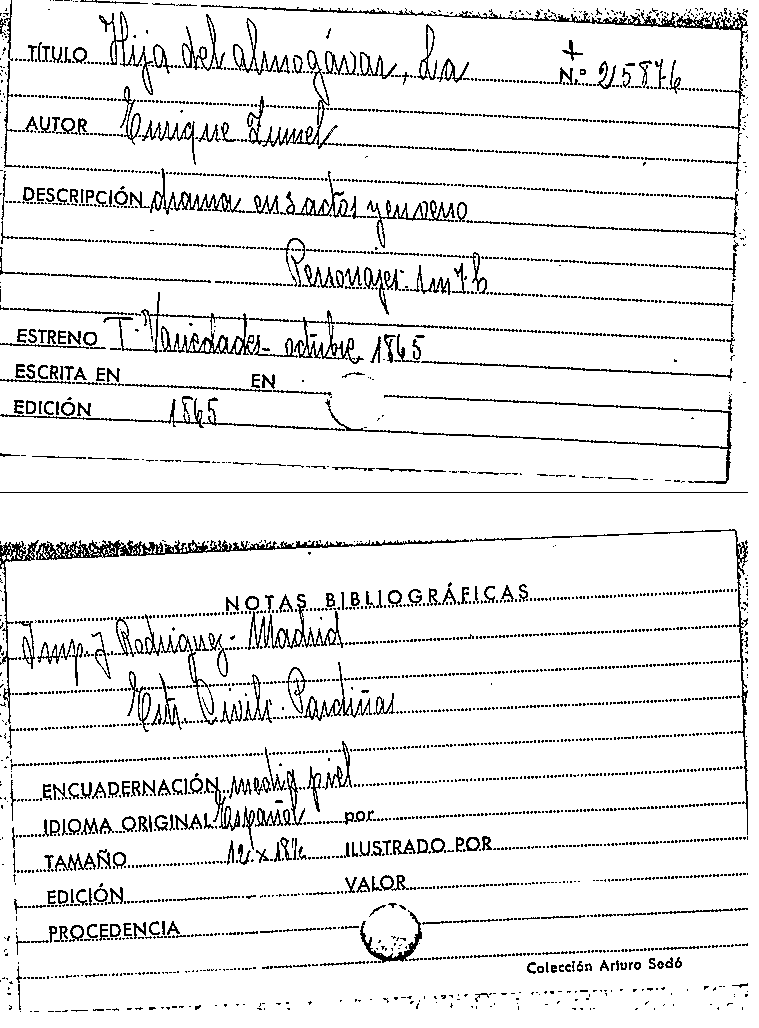 TÍTULO Hija del almogávar, La
+
N.º 25876
AUTOR Enrique Zumel
DESCRIPCIÓN drama en 3 actos y en verso
Personajes 1m 7h
ESTRENO T. Variedades - octubre 1865
ESCRITA EN EN
EDICIÓN 1865
NOTAS BIBLIOGRÁFICAS
Imp. J. Rodríguez - Madrid
Pardiñas
ENCUADERNACIÓN media piel
IDIOMA ORIGINAL Español por
TAMAÑO ILUSTRADO POR
EDICIÓN VALOR
PROCEDENCIA
Colección Arturo Sedó